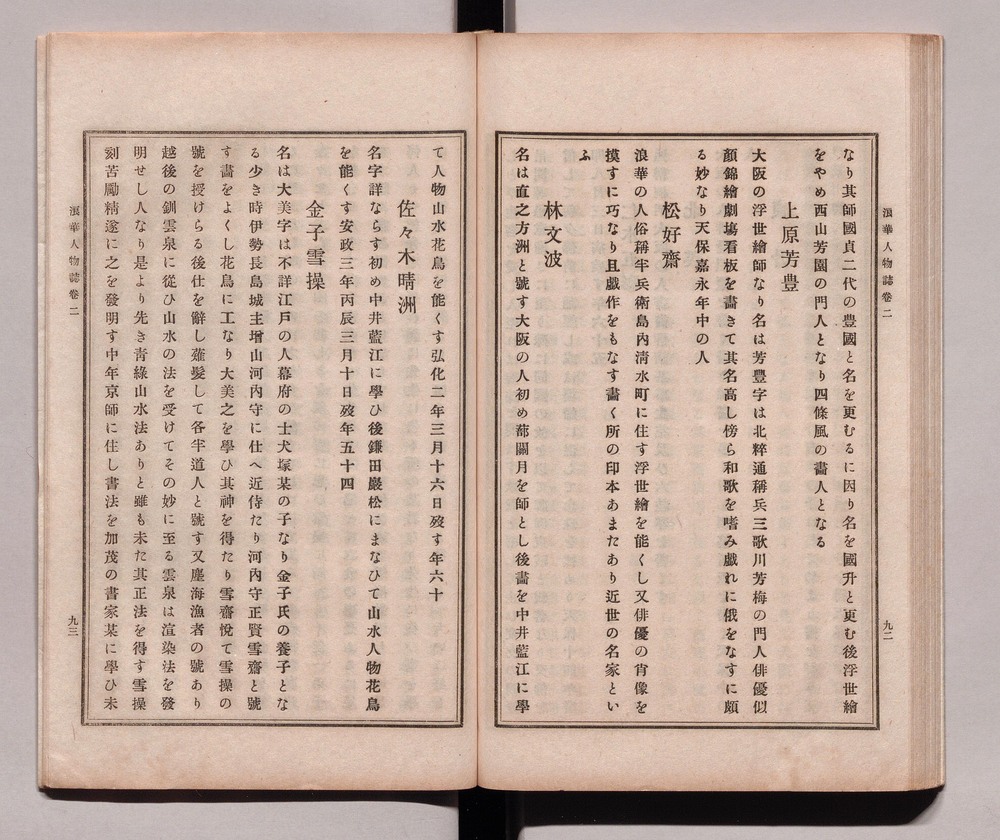 浪華人物誌卷二
九二
なり其師國貞二代の豊國と名を更むるに因り名を國升と更む後浮世繪
をやめ西山芳園の門人となり四條風の畵人となる
上原芳豊
大阪の浮世繪師なり名は芳豐字は北粹通稱兵三歌川芳梅の門人俳優似
顏錦繪劇塲看板を畵きて其名高し傍ら和歌を嗜み戯れに俄をなすに頗
る妙なり天保嘉永年中の人
松好齋
浪華の人俗稱半兵衛島內淸水町に住す浮世繪を能くし又俳優の肖像を
摸すに巧なり且戯作をもなす畵く所の印本あまたあり近世の名家とい
ふ
林文波
名は直之方洲と號す大阪の人初め蔀關月を師とし後畵を中井藍江に學
て人物山水花鳥を能くす弘化二年三月十六日歿す年六十
佐々木晴洲
名字詳ならす初め中井藍江に學ひ後鎌田巖松にまなひて山水人物花鳥
を能くす安政三年丙辰三月十日歿年五十四
金子雪操
名は大美字は不詳江戶の人幕府の士犬塚某の子なり金子氏の養子とな
る少き時伊勢長島城主增山河內守に仕へ近侍たり河內守正賢雪齋と號
す畵をよくし花鳥に工なり大美之を學ひ其神を得たり雪齋悅て雪操の
號を授けらる後仕を辭し薙髮して各半道人と號す又塵海漁者の號あり
越後の釧雲泉に從ひ山水の法を受けてその妙に至る雲泉は渲染法を發
明せし人なり是より先き靑綠山水法ありと雖も未た其正法を得す雪操
刻苦勵精遂に之を發明す中年京師に住し書法を加茂の書家某に學ひ未
浪華人物誌卷二
九三